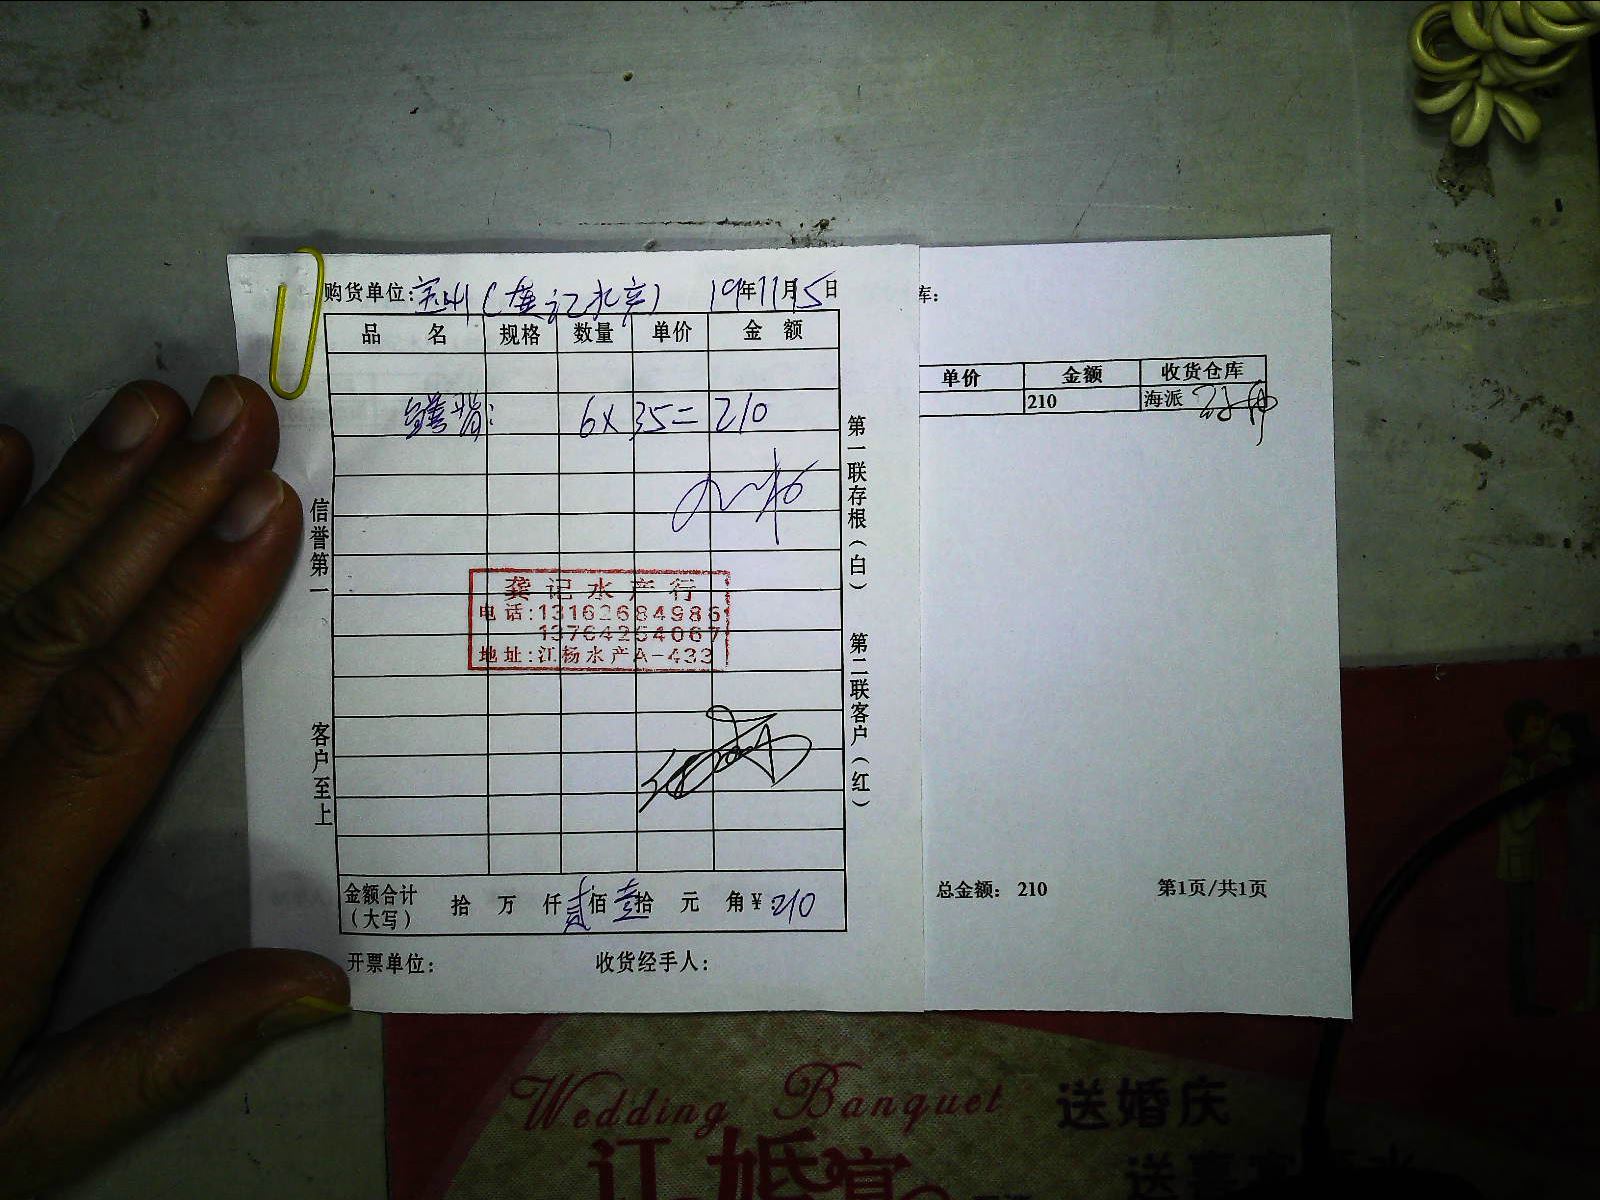 购货单位: (龚记水产) 19年11月15日
品 名 规格 数量 单价 金 额
鳝背: 6×35=210
信誉第一 客户至上
第一联存根(白) 第二联客户(红)
龚记水产行
电话:13162684986
13764264067
地址:江杨水产A-433
金额合计(大写) 拾 万 仟 贰佰 壹拾 元 角¥:210
开票单位: 收货经手人:
库:
单价 金额 收货仓库
210 海派
总金额: 210 第1页/共1页
Wedding Banquet 送婚庆
订婚宴